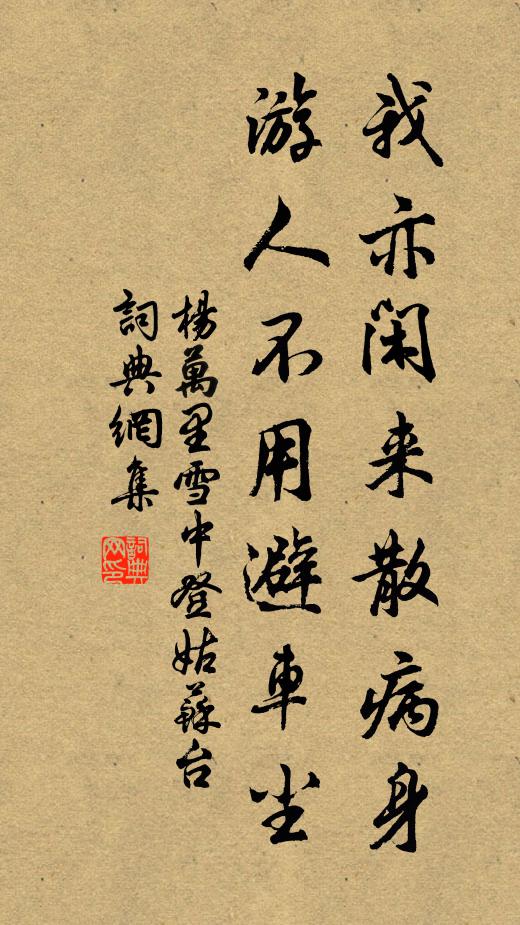 我亦閑来散病身
游人不用避車尘
楊萬里雪中登姑蘇台
詞典網集
詞典网印